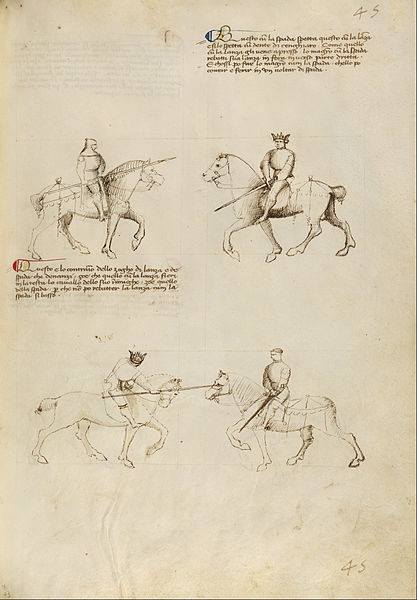 45
Questo cum la spada spetta questo cum la lanza
e si lo spetta in dente di zenghiaro. Como quello
cum la lanza gli vene apresso lo magistro cum la spada
rebatti sua lanza in fora inverso parte dritta.
E chosi po far lo magro cum la spada chello po
covrir e ferir in un voltar di spada.
Questo e lo contrario dello zogho di lanza e de
spada che denanzi zoe che quello cum la lanza fieri
in la testa lo cavallo dello suo inimigho zoe quello
della spada p che no po rebatter la lanza cum la
spada si basso.
45